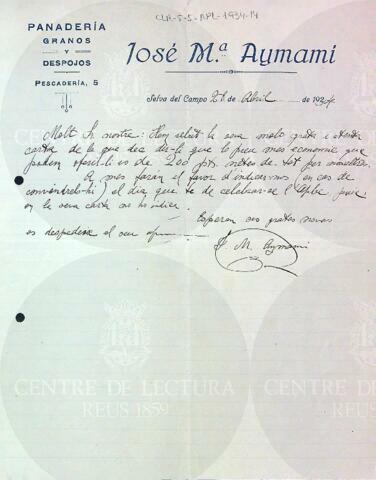 CLR-5-5-APL-1934-14
PANADERÍA
GRANOS
Y
DESPOJOS
PESCADERÍA, 5
José M.ª Aymamí
Selva del Campo 28 de Abril de 1934
Molt Sr. nostre: Hem rebut la seva molt grata i atenta
carta de la que dec dir-li que lo preu mes economic que
podem oferir-li es de 200 pts netes de tot per
A mes faran el favor d'indicar-nos (en cas de
convindre'ls-hi) el dia que te de celebrar-se l'Aplec puix
en la seva carta no ho indica.
Esperan ses grates noves
es despedeix el seu
J. M. Aymamí
CENTRE DE LECTURA
REUS 1859
CENTRE DE LECTURA
REUS 1859